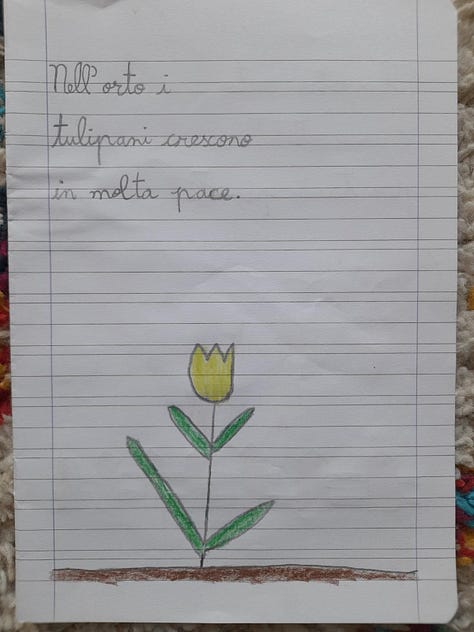 Nell'orto i
tulipani crescono
in molta pace.